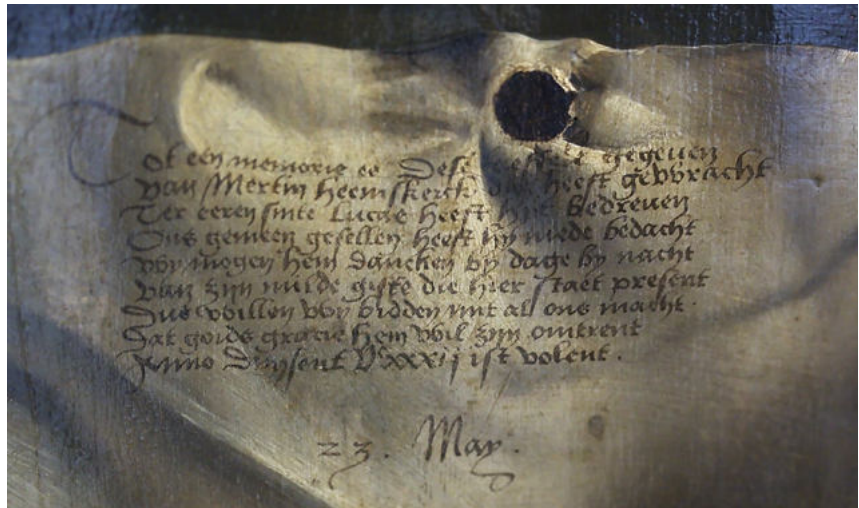 Tot een memorie es Dese gegeven
Van Mertin heemskerck die heeft gevvracht
Ter eeren sinte Lucas heeft hyt bedreven
Ons gemeen gesellen heeft hy mede bedacht
Wy mogen hem dancken by dage by nacht
Van zyn milde gifte die hier staet present
Dus willen vvy bidden mit al ons macht.
Dat goids gracie hem wil zyn omtrent
Anno Duysent Vcxxxij ist volent.
23. May.